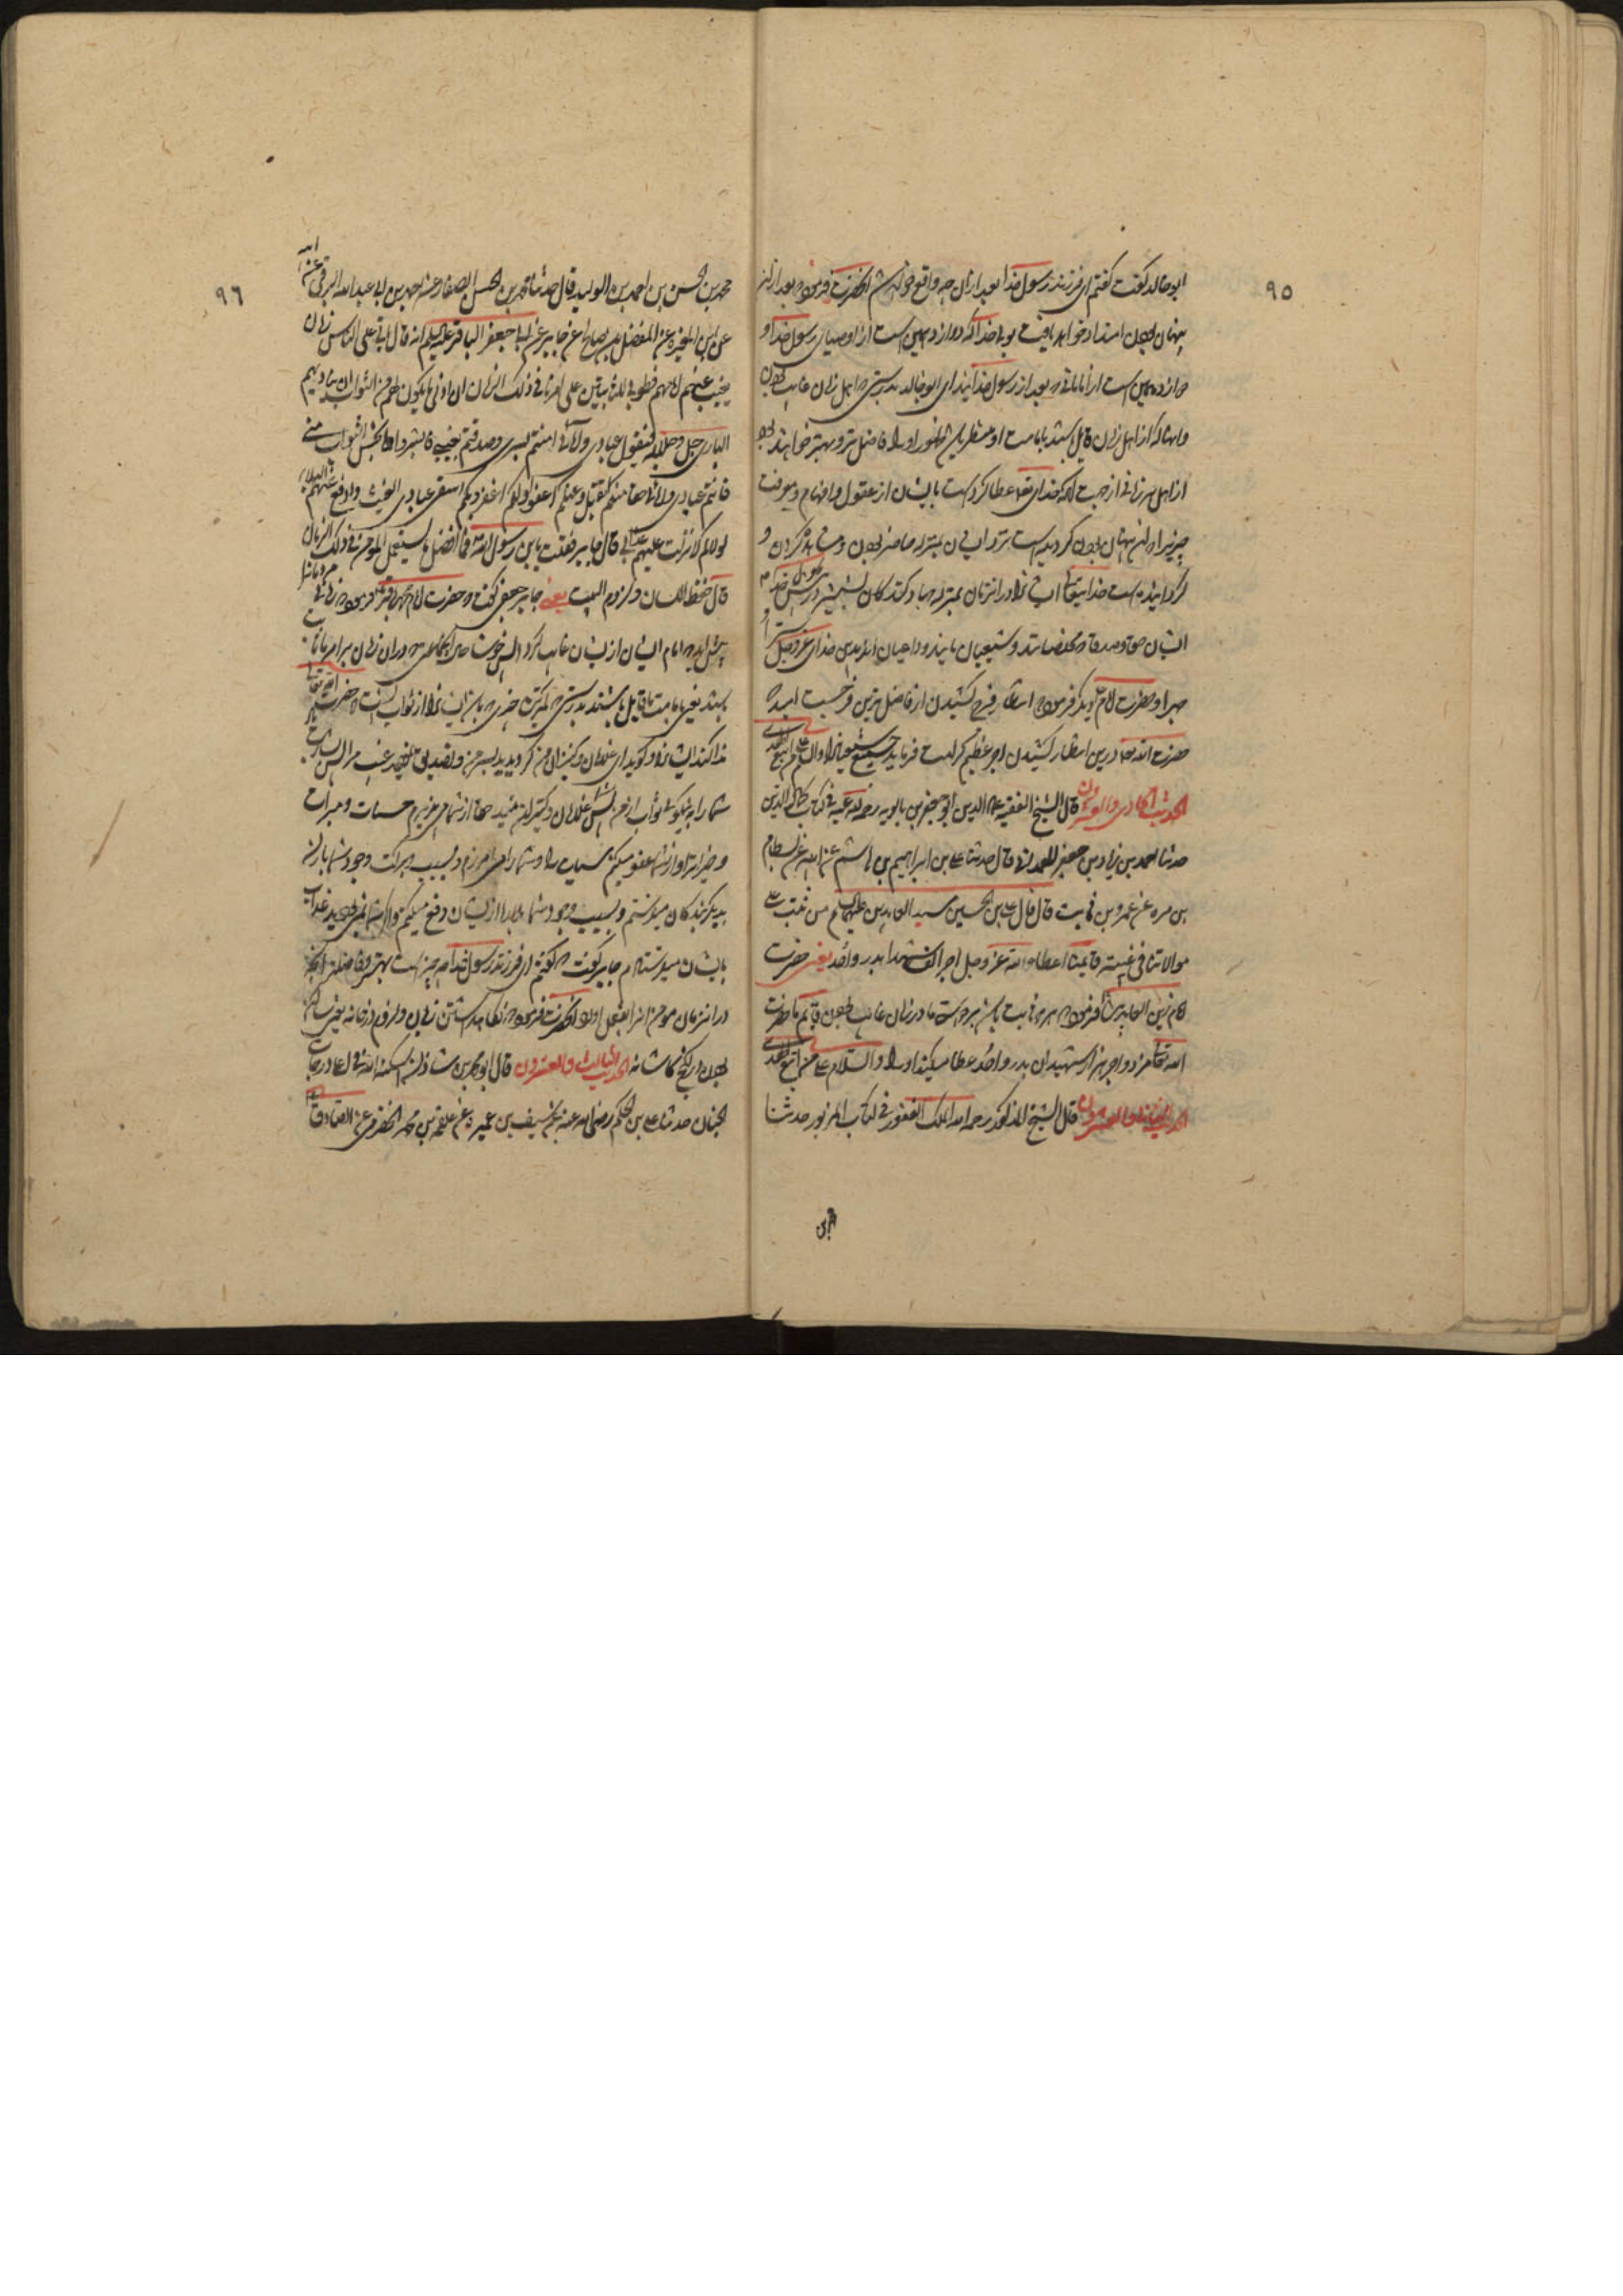 ٩٥
ابوخالد گفت که گفتم ای فرزند رسول خدا بعد ازان چه واقع خواهد شد آنحضرت فرمود که بعد ازان
پنهان بودن امتداد خواهد یافت بولی خدا که دوازدهمین است از اوصیای رسول خدا و
دوازدهمین است از امامان که بعد از رسول خدایند ای ابوخالد بدرستی که اهل زمان غایب بودن
و آنها که از اهل زمان قایل باشند بامامت او و منتظر باشند ظهور او را فاضل‌تر و بهتر خواهند بود
از اهل هر زمانی از جهت آنکه خدای تعالی عطا کرده است بایشان از عقول و افهام و معرفت
چیزی را که پنهان بودن گردیده است نزد ایشان بمنزله حاضر بودن و مشاهده کردن و
گردانیده است خدایتعالی ایشانرا در آنزمان بمنزله جهاد کنندگان بشمشیر در پیش رسول خدا
ایشان حقا و صدقا مخلصانند و شیعیان مایند و داعیان اند بدین خدای عزوجل سرا و
جهرا و حضرت امام دیگر فرمود که انتظار فرج کشیدن از فاضل‌ترین فرج است امید که
حضرت الله تعالی درین انتظار کشیدن اجر عظیم کرامت فرماید جمیع شیعیانرا والسلام علی من اتبع الهدی
الحدیث الحادی والعشرون قال الشیخ الفقیه عماد الدین ابو جعفر بن بابویه رحمة الله علیه فی کتاب کمال الدین
حدثنا احمد بن زیاد بن جعفر الهمدانی قال حدثنا علی بن ابراهیم بن هاشم عن ابیه عن بسطام
بن مره عن عمرو بن ثابت قال قال علی بن الحسین سید العابدین علیهما السلام من ثبت علی
موالاتنا فی غیبة قائمنا اعطاه الله عزوجل اجر الف شهدا بدر و احد یعنی حضرت
امام زین العابدین فرمود که هر که ثابت باشد بر دوستی ما در زمان غایب بودن قایم ما حضرت
الله تعالی مزد و اجر هزار شهیدان بدر و احد عطا میکند او را والسلام علی من اتبع الهدی
الحدیث الثانی والعشرون قال الشیخ المذکور رحمه الله الملک الغفور فی کتاب المزبور حدثنا
محمد بن
٩٦
محمد بن الحسن بن احمد بن الولید قال حدثنا محمد بن الحسن الصفار عن احمد بن ابی عبدالله البرقی عن ابیه
عن المغیره عن المفضل بن صالح عن جابر عن ابی جعفر الباقر علیه السلام انه قال یاتی علی الناس زمان
یغیب عنهم امامهم فطوبی للثابتین علی امرنا فی ذلک الزمان ان ادنی ما یکون لهم من الثواب ان ینادیهم
الباری جل جلاله فیقول عبادی و امائی امنتم بسری و صدقتم بغیبی فابشروا بحسن الثواب منی
فانتم عبادی و امائی حقا منکم اتقبل و عنکم اعفو و لکم اغفر و بکم اسقی عبادی الغیث و ادفع عنهم البلاء
لولاکم لانزلت علیهم عذابی قال جابر فقلت یابن رسول الله فما افضل ما یستعمل المومن فی ذلک الزمان
قال حفظ اللسان و لزوم البیت یعنی جابر جعفی گفت که حضرت امام محمد باقر فرمود که زمانی بر مردمان
پیش آید که امام ایشان ازیشان غایب گردد پس خوشا حال آنکسانی که در آن زمان بر امر ما ثابت
باشند یعنی بامامت ما قایل باشند بدرستی که کمترین چیزی که باشد ایشانرا از ثواب اینست که حضرت الله تعالی
ندا کند ایشانرا و گوید ای غلامان و کنیزان من گرویدید بسر من و تصدیق نمودید غیب مرا پس بشارت باد
شما را به نیکوئی ثواب از من پس شما غلامان و کنیزان منید حقا از شما می‌پذیرم حسنات و مبرات
و خیرات را و از شما عفو میکنم سیئات را و شما را می‌آمرزم و بسبب برکت وجود شما باران
به بندگان میفرستم و بسبب وجود شما بلا را ازیشان دفع میکنم و اگر شما نمی‌بودید عذاب
بایشان میفرستادم جابر گفت که گفتم ای فرزند رسول خدا چه چیز است بهتر و فاضلتر آنچه
در آنزمان مومن آنرا بفعل آورد آنحضرت فرمود که نگاهداشتن زبان و لزوم خانه یعنی ساکن
بودن در کنج کاشانه الحدیث الثالث والعشرون قال ابو محمد بن شاذان اسکنه الله فی اعلی درجات
الجنان حدثنا علی بن الحکم رضی الله عنه عن سیف بن عمیره عن علقمة بن محمد الحضرمی عن الصادق